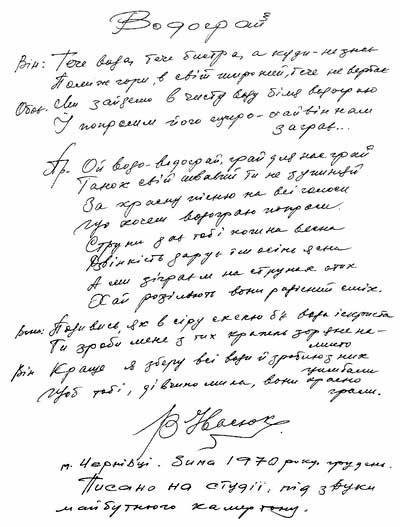 Водограй
Він: Тече вода, тече бистра, а куди - не зна
Поміж гори, в світ широкий, тече не верта
Обоє: Ми зайдемо в чисту воду біля водограю
У попросим його щиро - хай він нам
заграє...
Пр. Ой водо-водограй, грай для нас, грай
Танок свій жвавий ти не зупиняй
За красну пісню на всі голоси
що хочеш водограю попроси.
Струни дав тобі копина весна
Дзвінкість дарує їм осінь ясна
А ми зіграєм на струнах отих
Хай розіллють вони радісний сміх.
Вона: Подивись, як в сіру скелю б'є вода іскриста
Ти зроби мене з тих крапель зоряне на-
мисто
Він Краще я зберу всі води й зроблю з них
цимбали
Щоб тобі, дівчино мила, вони красно
грали.
В Івасюк
м. Чернівці. Зима 1970 року, грудень.
Писано на студії, під звуки
майбутнього камертону.